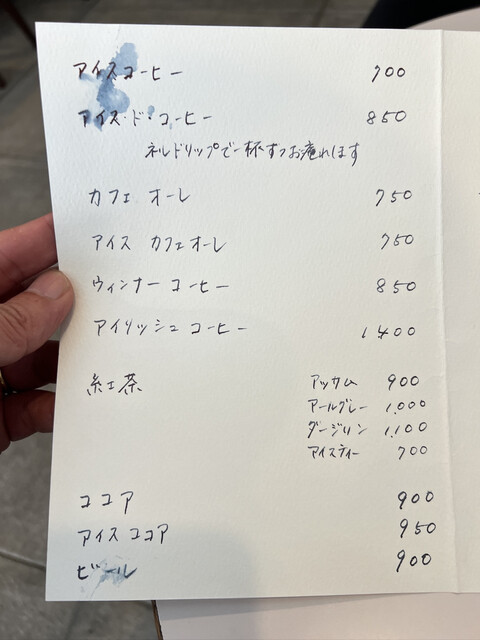 アイスコーヒー 700
アイス・ド・コーヒー 850
ネルドリップで一杯ずつお淹れします
カフェ オーレ 750
アイス カフェオーレ 750
ウィンナー コーヒー 850
アイリッシュ コーヒー 1400
紅茶 アッサム 900
アールグレー 1,000
ダージリン 1,100
アイスティー 700
ココア 900
アイス ココア 950
ビール 900